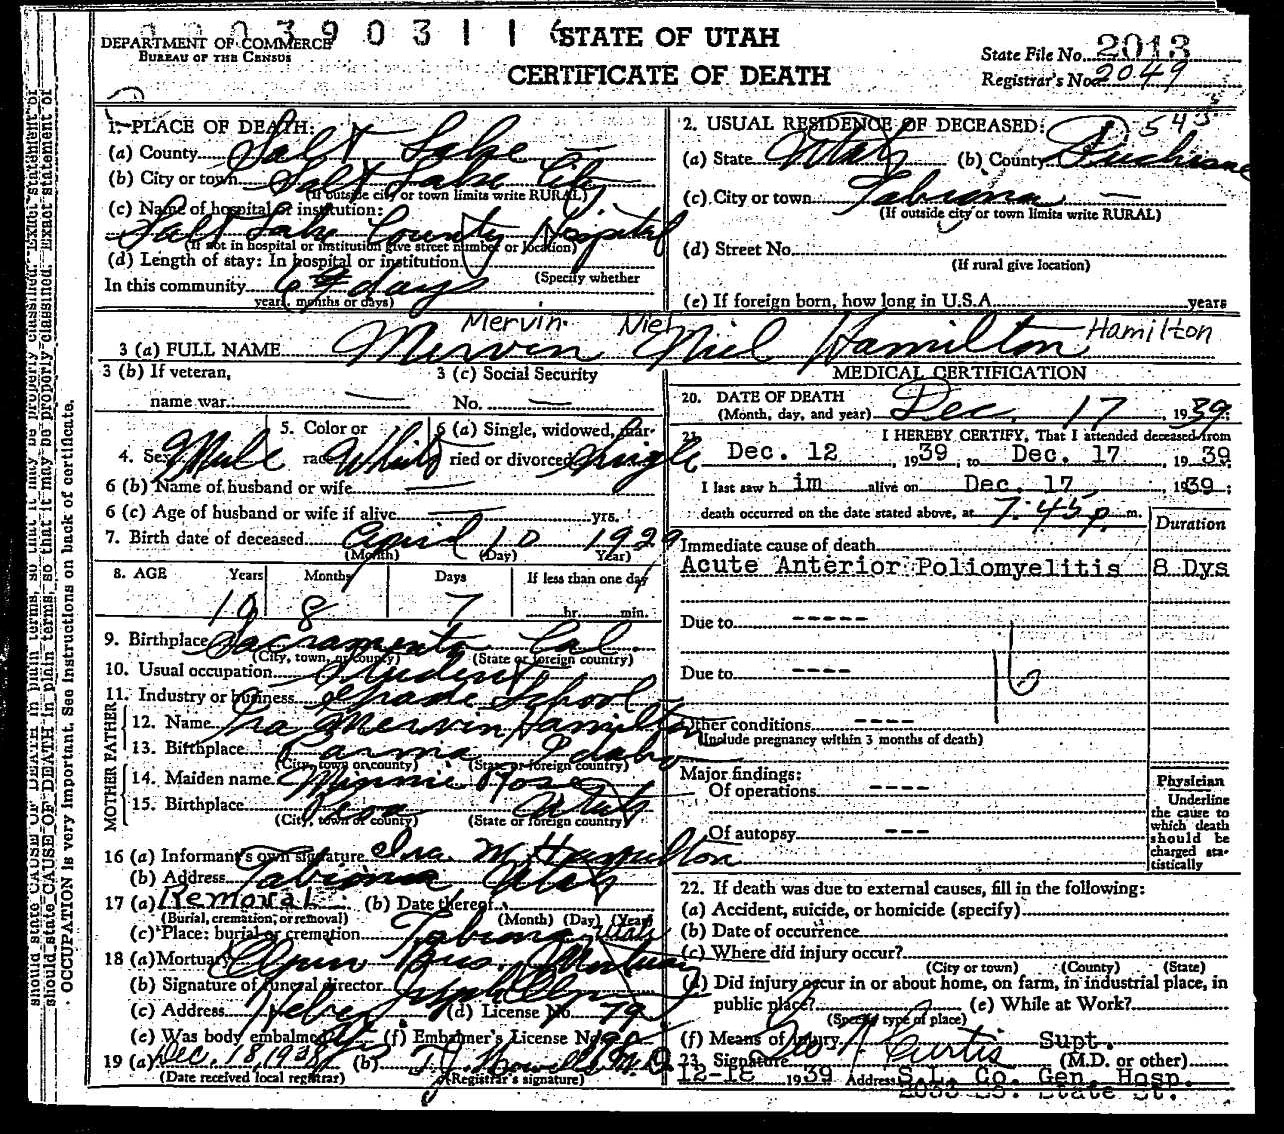 0 0 3 9 0 3 1 1 6
DEPARTMENT OF COMMERCE
BUREAU OF THE CENSUS
STATE OF UTAH
CERTIFICATE OF DEATH
State File No. 2013
Registrar's No. 2049
1. PLACE OF DEATH:
(a) County Salt Lake
(b) City or town Salt Lake City
(If outside city or town limits write RURAL)
(c) Name of hospital or institution:
Salt Lake County Hospital
(If not in hospital or institution give street number or location)
(d) Length of stay: In hospital or institution
(Specify whether
In this community days
years, months or days)
2. USUAL RESIDENCE OF DECEASED:
(a) State Utah (b) County Duchesne
(c) City or town Tabiona —
(If outside city or town limits write RURAL)
(d) Street No.
(If rural give location)
(e) If foreign born, how long in U.S.A. years
Mervin Niel Hamilton
3 (a) FULL NAME Mervin Niel Hamilton
3 (b) If veteran,
name war: —
3 (c) Social Security
No. —
4. Sex Male
5. Color or
race White
6 (a) Single, widowed, mar-
ried or divorced Single
6 (b) Name of husband or wife —
6 (c) Age of husband or wife if alive — yrs.
7. Birth date of deceased April 10 1929
(Month) (Day) Year)
8. AGE Years Months Days If less than one day
10 8 7 hr. min.
9. Birthplace Sacramento Cal.
(City, town, or county) (State or foreign country)
10. Usual occupation Student
11. Industry or business Grade School
FATHER
12. Name Ira Mervin Hamilton
13. Birthplace Parma Idaho
(City, town or county) (State or foreign country)
MOTHER
14. Maiden name Minnie Rose
15. Birthplace Utah
(City, town or county) (State or foreign country)
16 (a) Informant's own signature Ira M Hamilton
(b) Address Tabiona Utah
17 (a) Removal (b) Date thereof
(Burial, cremation, or removal) (Month) (Day) (Year)
(c) Place: burial or cremation Tabiona Utah
18 (a) Mortuary Olpin Bros. Mortuary
(b) Signature of funeral director Joseph Olpin
(c) Address Heber (d) License No. 79
(e) Was body embalmed (f) Embalmer's License No.
19 (a) Dec. 18, 1938 (b) T.J. Howells M.D.
(Date received local registrar) (Registrar's signature)
MEDICAL CERTIFICATION
20. DATE OF DEATH
(Month, day, and year) Dec. 17, 1939;
21. I HEREBY CERTIFY, That I attended deceased from
Dec. 12, 1939, to Dec. 17, 1939
I last saw him alive on Dec. 17, 1939;
death occurred on the date stated above, at 7:45 p m.
Duration
Immediate cause of death
Acute Anterior Poliomyelitis 8 Dys
Due to -----
Due to ----
16
Other conditions ----
(Include pregnancy within 3 months of death)
Major findings:
Of operations ----
Of autopsy ---
Physician
Underline
the cause to
which death
should be
charged sta-
tistically
22. If death was due to external causes, fill in the following:
(a) Accident, suicide, or homicide (specify)
(b) Date of occurrence
(c) Where did injury occur?
(City or town) (County) (State)
(d) Did injury occur in or about home, on farm, in industrial place, in
public place? (e) While at Work?
(Specify type of place)
(f) Means of injury
23. Signature Geo N Curtis Supt.
(M.D. or other)
12-18 1939 Address S.L. Co. Gen. Hosp.
2033 So. State St.
should state CAUSE OF DEATH in plain terms, so that it may be properly classified. Exact statement of
OCCUPATION is very important. See instructions on back of certificate.